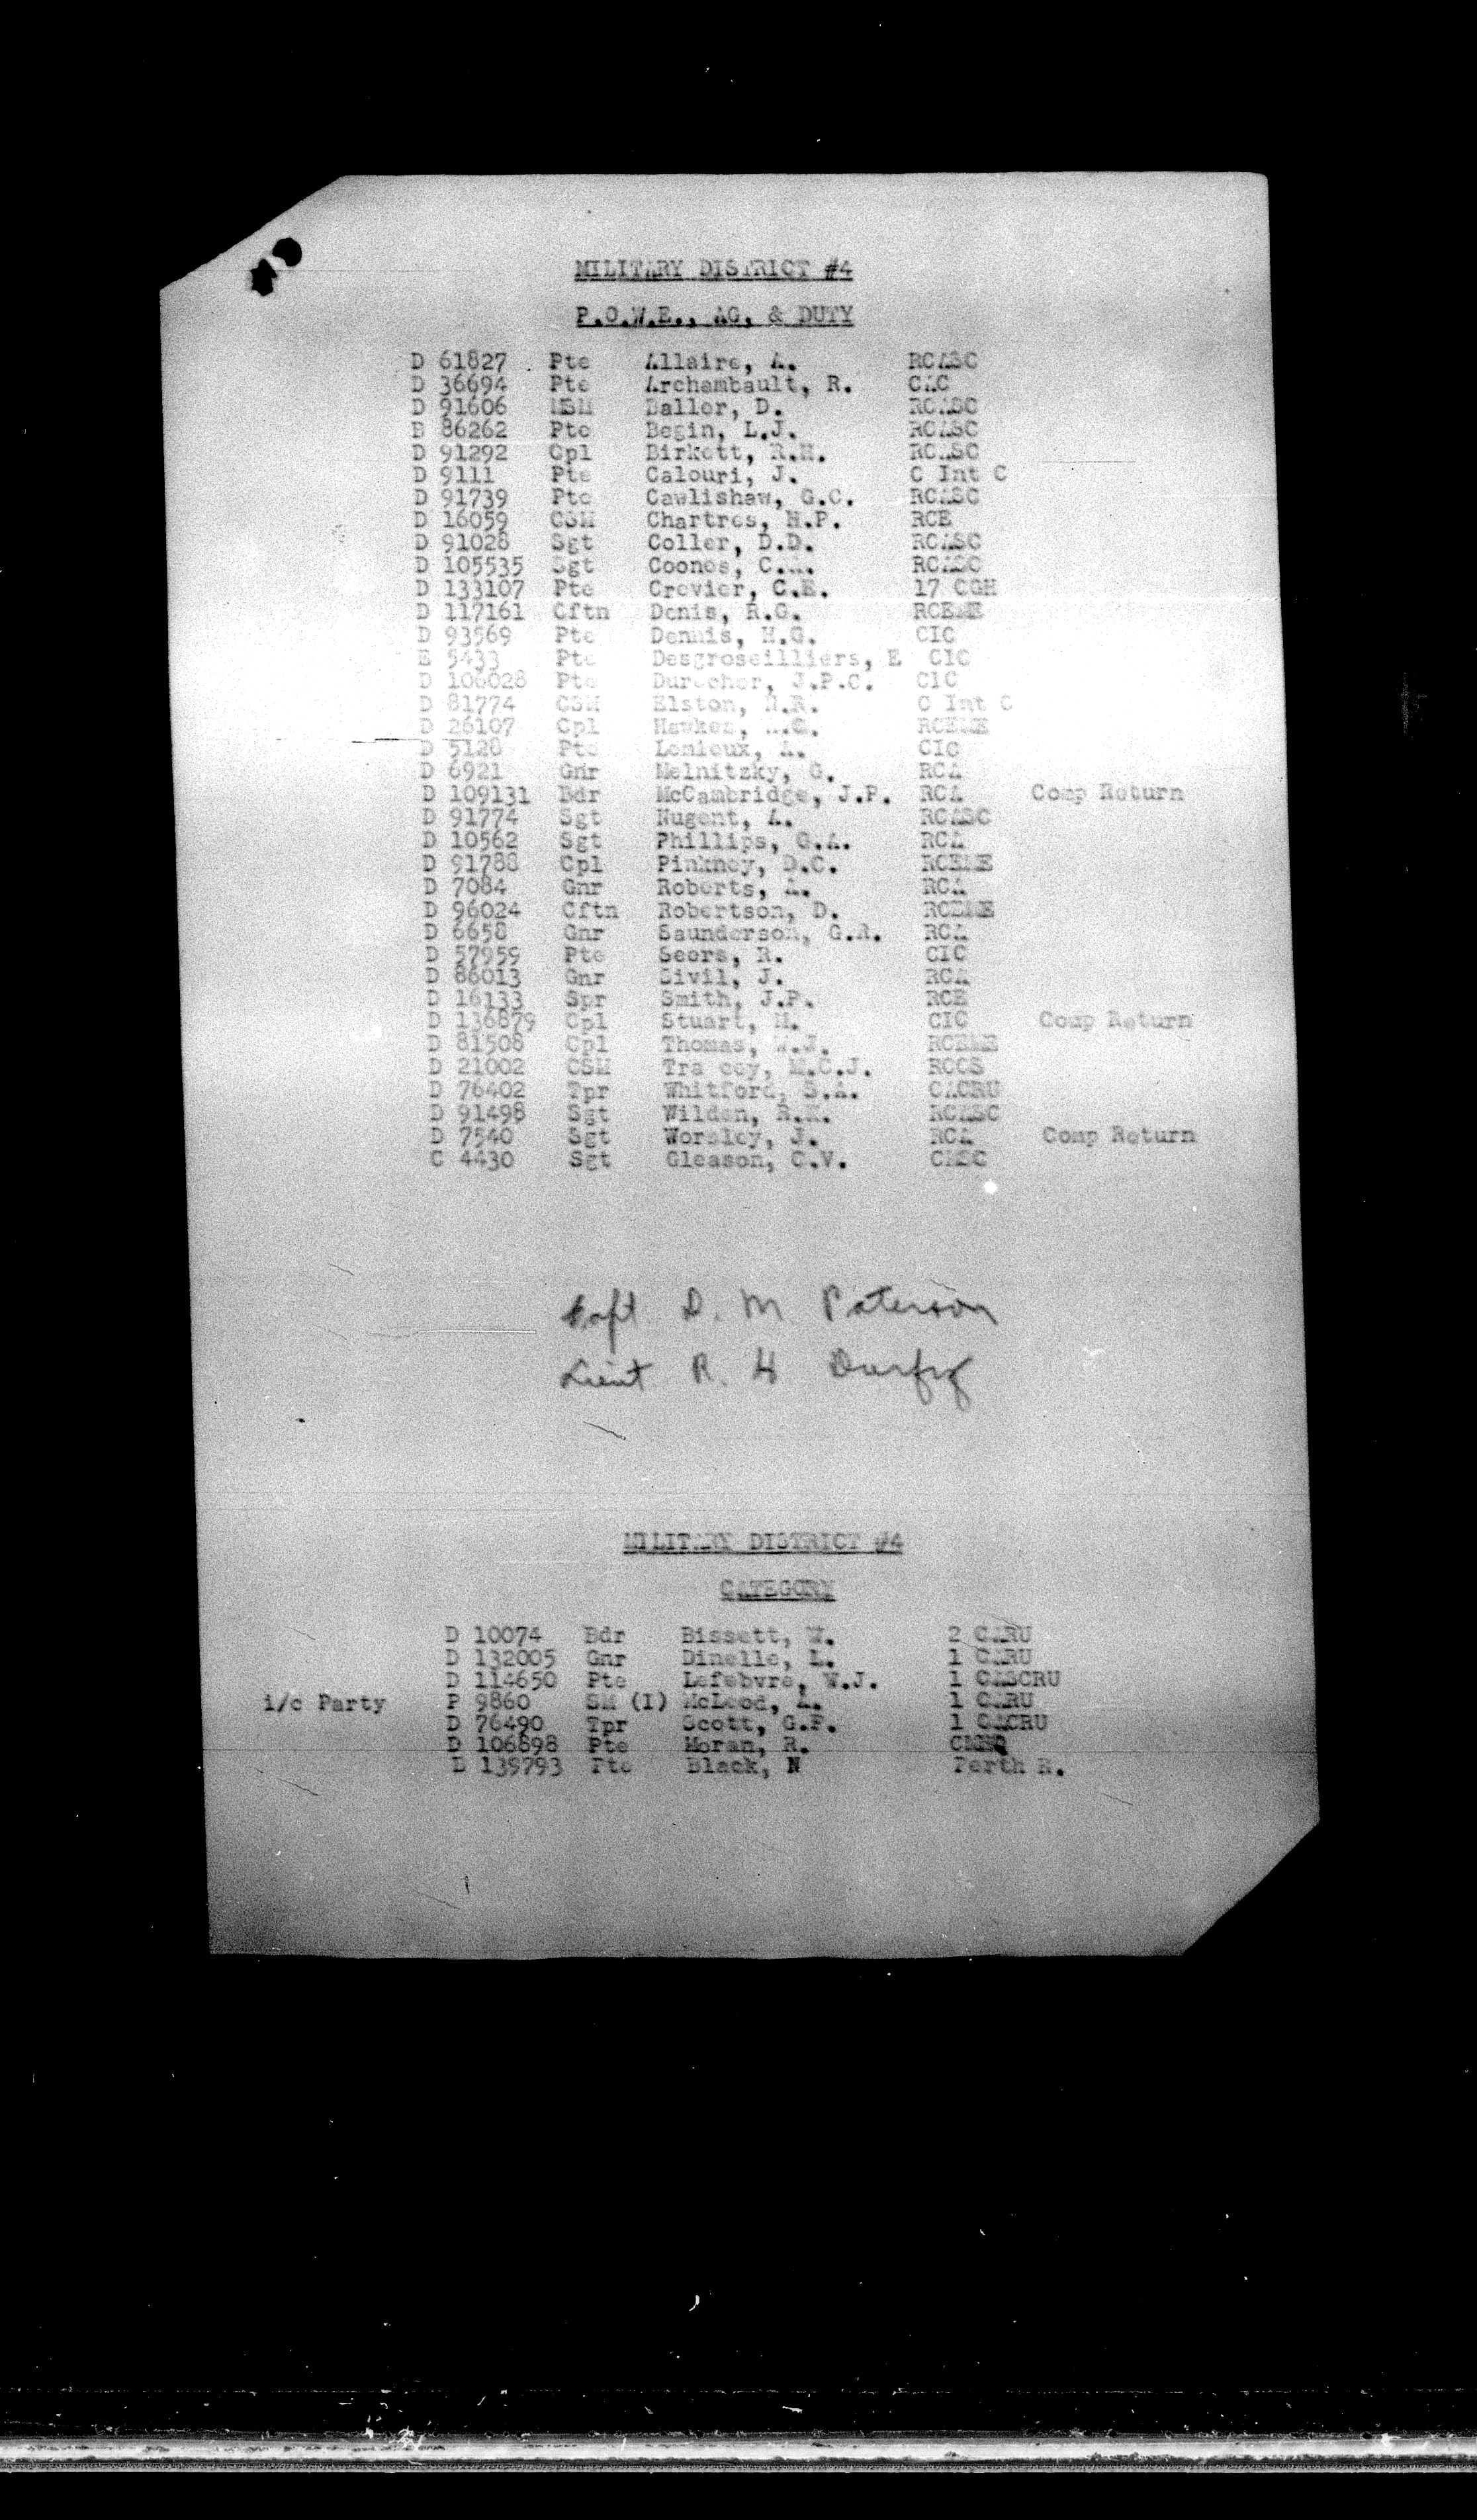 MILITARY DISTRICT #4
P.O.W.E., AG, & DUTY
D 61827 Pte Allaire, A. RCASC
D 36694 Pte Archambault, R. CAC
D 91606 MSM Baller, D. RCASC
E 86262 Pte Begin, L.J. RCASC
D 91292 Cpl Birkett, R.H. RCASC
D 9111 Pte Calouri, J. C Int C
D 91739 Pte Cawlishaw, G.C. RCASC
D 16059 CSM Chartres, H.P. RCE
D 91028 Sgt Coller, D.D. RCASC
D 105535 Sgt Coones, RCASC
D 133107 Pte Crevier, C.E. 17 CGH
D 117161 Cftn Denis, R.G. RCEME
D 93569 Pte Dennis, H.G. CIC
E 5433 Pte Desgroseilliers, E CIC
D 106028 Pte Durocher, J.P.C. CIC
D 81774 CSM Elston, R.R. C Int C
D 26107 Cpl Hawkes, RCEME
D 5128 Pte Lemieux, A. CIC
D 6921 Gnr Melnitzky, G. RCA
D 109131 Bdr McCambridge, J.P. RCA Comp Return
D 91774 Sgt Nugent, A. RCASC
D 10562 Sgt Phillips, G.A. RCA
D 91788 Cpl Pinkney, D.C. RCEME
D 7084 Gnr Roberts, A. RCA
D 96024 Cftn Robertson, D. RCEME
D 6658 Gnr Saunderson, G.R. RCA
D 57959 Pte Seers, R. CIC
D 86013 Gnr Sivil, J. RCA
D 16133 Spr Smith, J.P. RCE
D 136879 Cpl Stuart, H. CIC Comp Return
D 81508 Cpl Thomas, W.J. RCEME
D 21002 CSM Tra cey, M.C.J. RCCS
D 76402 Tpr Whitford, S.A. CACRU
D 91498 Sgt Wilden, R.K. RCASC
D 7540 Sgt Worsley, J. RCA Comp Return
C 4430 Sgt Gleason, C.V. CMSC
Capt D. M Paterson
Lieut R. H
MILITARY DISTRICT #4
CATEGORY
D 10074 Bdr Bissett, W. 2 CARU
D 132005 Gnr Dinelle, L. 1 CARU
D 114650 Pte Lefebvre, W.J. 1 CASCRU
i/c Party P 9860 SM (I) McLeod, A. 1 CARU
D 76490 Tpr Scott, G.P. 1 CACRU
D 106898 Pte Moran, R. CMHQ
D 139793 Pte Black, N Perth R.